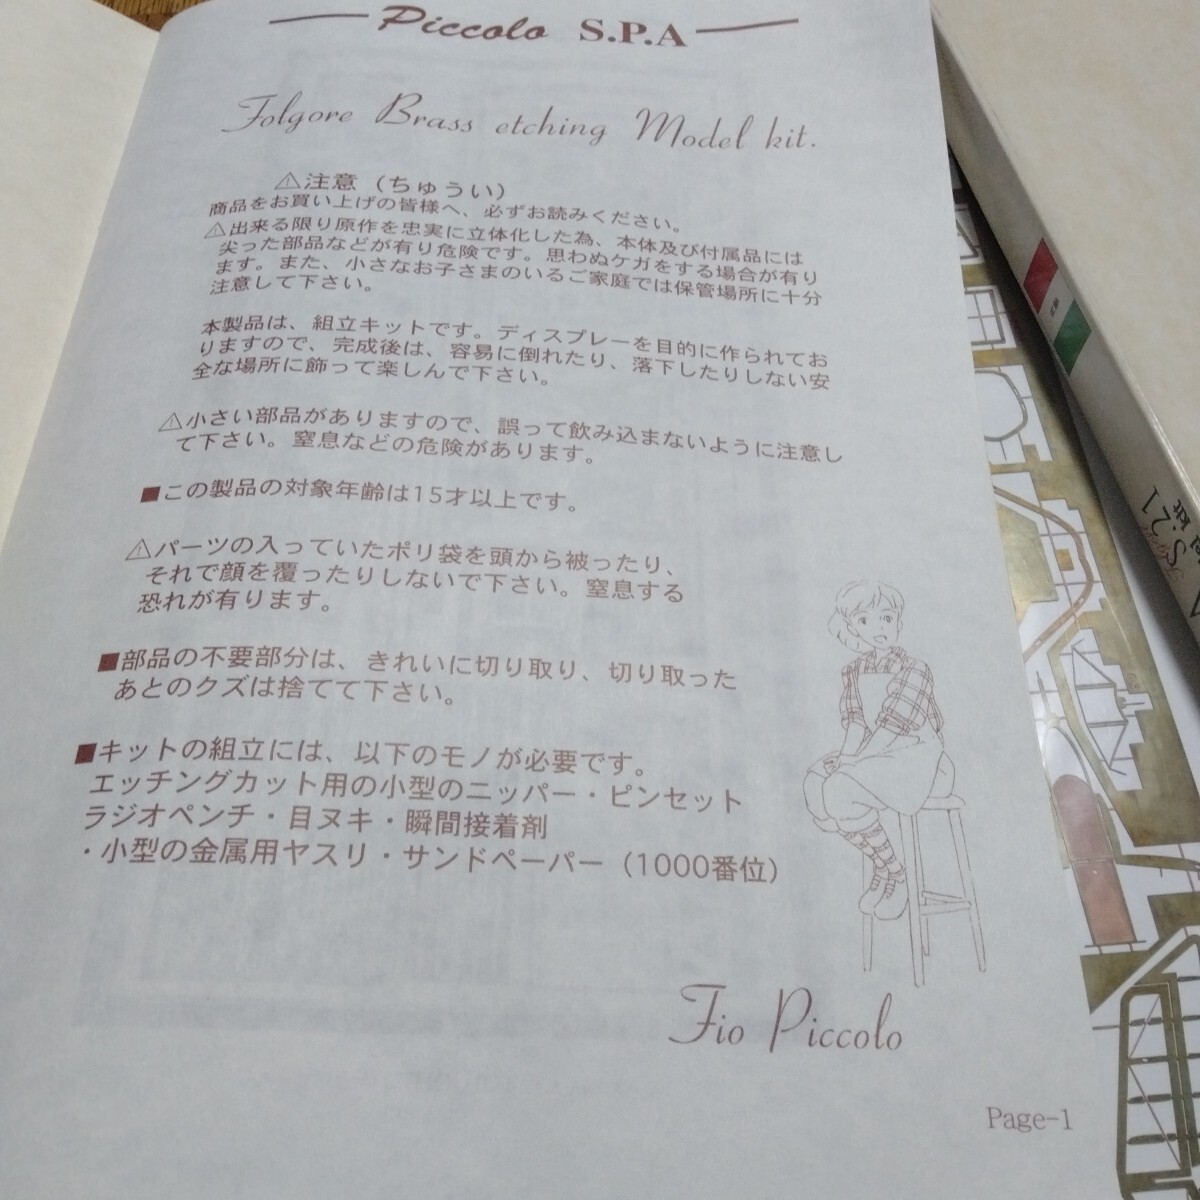 Piccolo S.P.A
Folgore Brass etching Model kit.
⚠注意（ちゅうい）
商品をお買い上げの皆様へ、必ずお読みください。
⚠出来る限り原作を忠実に立体化した為、本体及び付属品には
尖った部品などが有り危険です。思わぬケガをする場合が有り
ます。また、小さなお子さまのいるご家庭では保管場所に十分
注意して下さい。
本製品は、組立キットです。ディスプレーを目的に作られてお
りますので、完成後は、容易に倒れたり、落下したりしない安
全な場所に飾って楽しんで下さい。
⚠小さい部品がありますので、誤って飲み込まないように注意し
て下さい。窒息などの危険があります。
■この製品の対象年齢は15才以上です。
⚠パーツの入っていたポリ袋を頭から被ったり、
それで顔を覆ったりしないで下さい。窒息する
恐れが有ります。
■部品の不要部分は、きれいに切り取り、切り取った
あとのクズは捨てて下さい。
■キットの組立には、以下のモノが必要です。
エッチングカット用の小型のニッパー・ピンセット
ラジオペンチ・目ヌキ・瞬間接着剤
・小型の金属用ヤスリ・サンドペーパー（1000番位）
Fio Piccolo
Page-1
S.21
kit